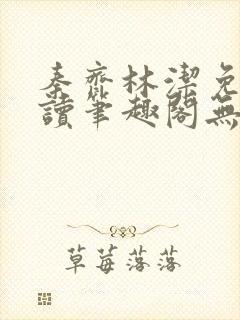 秦齊林潔免
讀筆趣閣無
草莓落落